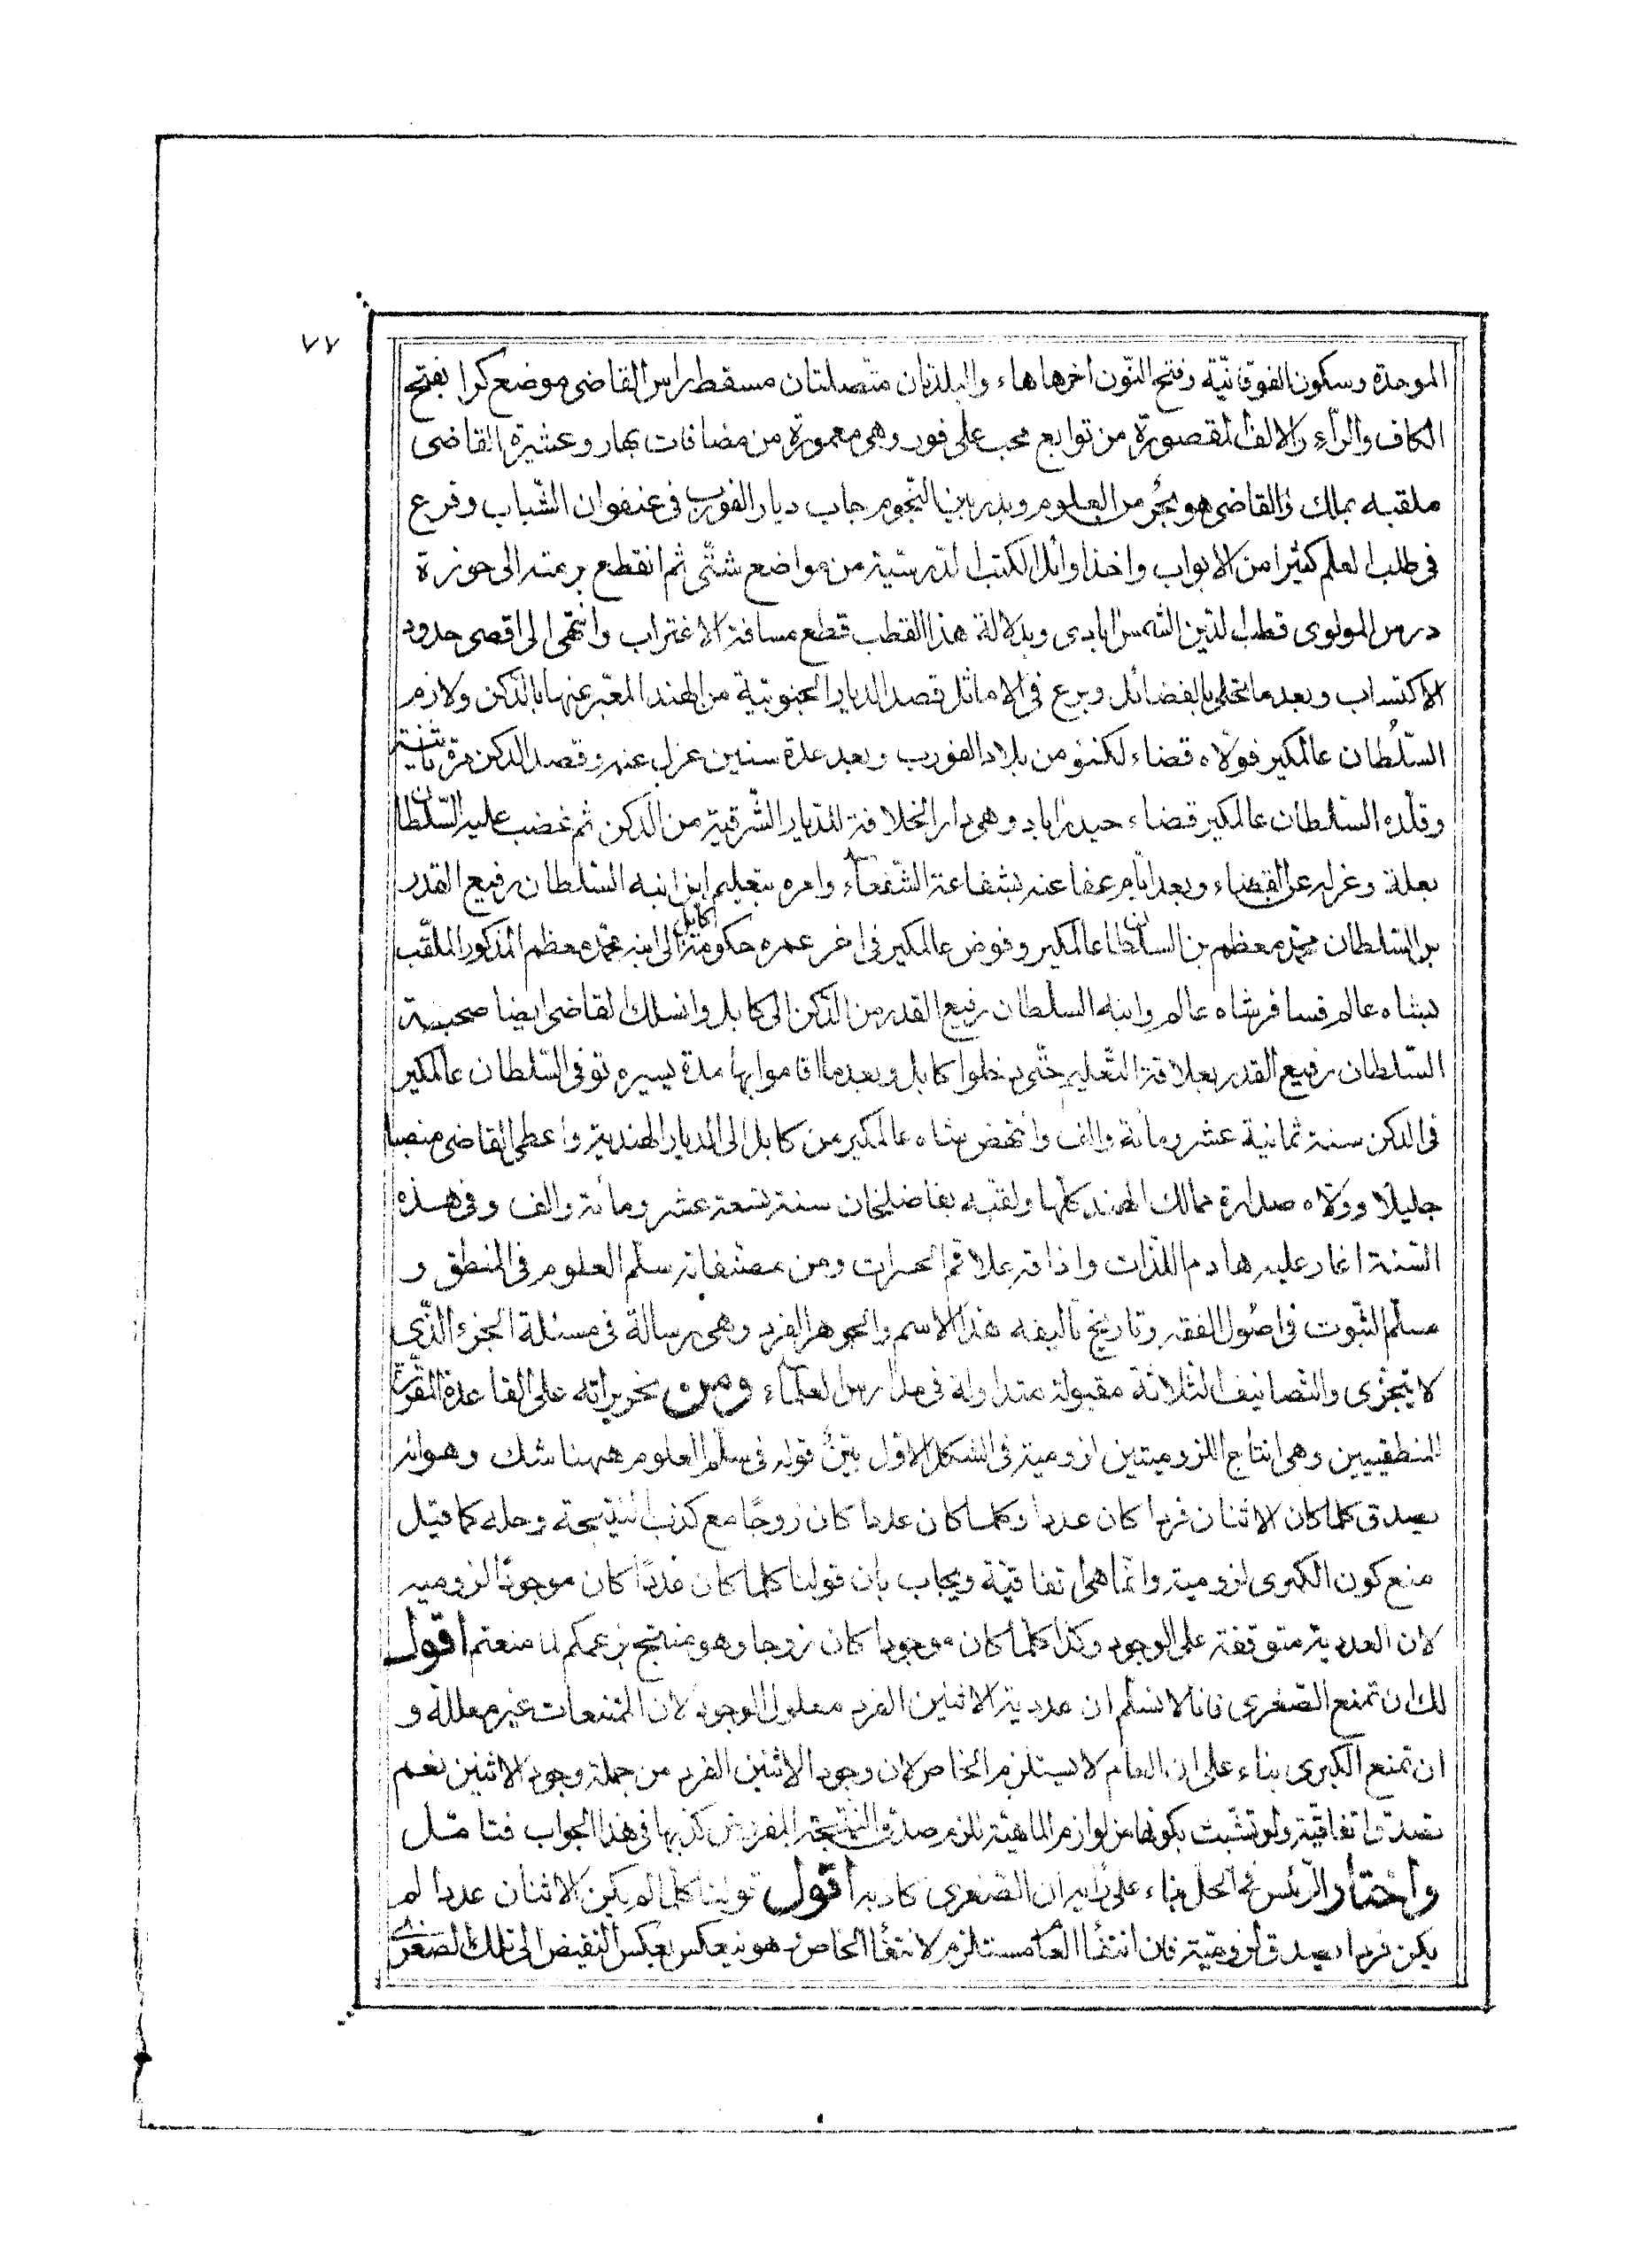 ٧٧
الموحدة وسكون الفوقانيّة وفتح النّون اخرها هاء والبلدتان متّصلتان مسقط راس القاضى موضع كرا بفتح
الكاف والرّاء والالف المقصورة من توابع محب على فور وهى معمورة من مضافات بهار وعشيرة القاضى
ملقبه بملك والقاضى هو بحر من العلوم وبدر بين النّجوم جاب ديار الفورب فى عنفوان الشّباب وقرع
فى طلب العلم كثيرا من الابواب واخذ اوائل الكتب الدّرسيّة من مواضع شتّى ثم انقطع برمته الى حوزة
درس المولوى قطب الدّين الشّمس ابادى وبدلالة هذا القطب قطع مسافة الاغتراب وانتهى الى اقصى حدود
الاكتساب وبعد ما تحلى بالفضائل وبرع فى الاماثل قصد الديار الجنوبيّة من الهند المعبّر عنها بالدّكن ولازم
السّلُطان عالمكير فولاه قضاء لكنؤ من بلاد الفورب وبعد عدة سنين عزل عنه وقصد الدكن مرة ثانية
وقلّده السّلطان عالمكير قضاء حيدراباد وهى دار الخلافة للدّيار الشّرقية من الدكن ثم غضب عليه السّلطان
بعلة وعزله عن القضاء وبعد ايّام عفا عنه بشفاعة الشّفعاء وامره بتعليم ابن ابنه السّلطان رفيع القدر
بن السّلطان محمّد معظم بن السلطان عالمكير وفوض عالمكير فى اخر عمره حكومة كابل الى ابنه محمّد معظم المذكور الملقّب
بشاه عالم فسافر شاه عالم وابنه السلطان رفيع القدر من الدّكن الى كابل وانسلك القاضى ايضا صحبة
السّلطان رفيع القدر بعلاقة التّعليم حتّى دخلوا كابل وبعد ما اقاموا بها مدة يسيره توفى السّلطان عالمكير
فى الدكن سنة ثمانية عشر ومائة والف وانتهض شاه عالمكير من كابل الى الديار الهندية واعطى القاضى منصبا
جليلا وولاه صدارة ممالك الهند كلّها ولقبّه بفاضلخان سنة تسعة عشر ومأئة والف وفى هذه
السّنة اغار عليه هادم اللّذات واذاقه علاقم الحسرات ومن مصنّفاته سلّم العلوم فى المنطق و
مسلّم الثّبوت فى اصُول الفقه وتاريخ تأليفه هذا الاسم والجوهر الفرد وهى رسالة فى مسئلة الجزء الذّى
لا يتجزّى والتّصانيف الثلاثة مقبولة متداولة فى مدارس العلماء ومن تحريراته على القاعدة المقرّرة
للمنطقييين وهى انتاج اللزوميتين لزومية فى الشكل الاوّل بيّنٌ قوله فى سلّم العلوم ههنا شك وهوانه
يصدق كلما كان الاثنان فردا كان عددا وكلما كان عددا كان زوجًا مع كذب النّتيجة وحله كما قيل
منع كون الكبرى لزومية وانّما هى اتفاقيّة ويجاب بان قولنا كلما كان عددًا كان موجودًا لزوميه
لان العددية متوقفة على الوجود وكذا كلّما كان موجودا كان زوجا وهو منتج بزعمكم لما منعتم اقول
لك ان تمنع الصّغرى فانا لا نسلّم ان عددية الاثنين الفرد معلول الوجود لان الممتنعات غير معللة و
ان تمنع الكبرى بناء على ان العام لا يستلزم الخاص لان وجود الاثنين الفرد من جملة وجود الاثنين نعم
تصدق اتفاقيّة ولو تشبّث بكونها من لوازم الماهيّة يلزم صدق النّتيجة المفروض كذبها فى هذا الجواب فتامّل
واختار الرّئيس فى الحل بناء على رايه ان الصّغرى كاذبه اقول قولنا كلما لم يكن الاثنان عددا لم
يكن فردا يصدق لزوميّة فان انتفاء العام مستلزم لانتفاء الخاص وهو ينعكس بعكس النقيض الى تلك الصّغرى